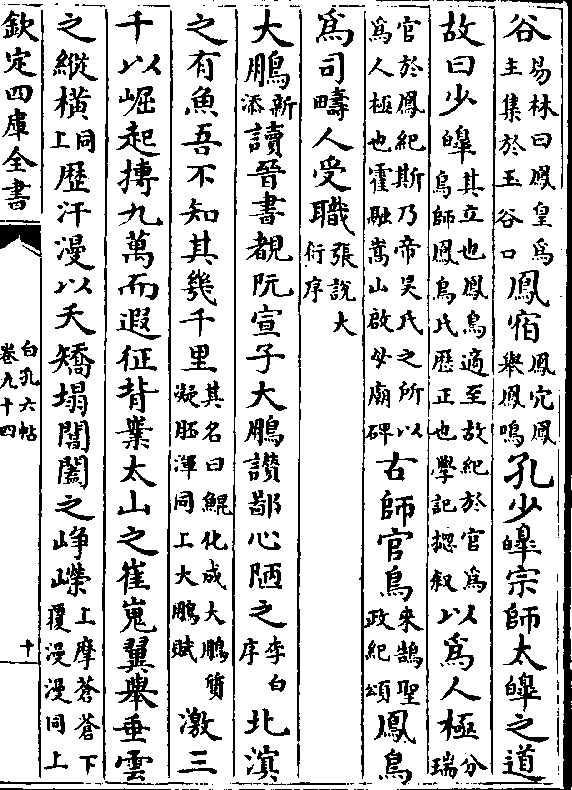 谷易林曰鳳皇為主集於玉谷口鳳宿鳳穴鳳舉鳳鳴孔少皥宗師太皥之道
故曰少皥其立也鳳鳥適至故紀於官為鳥師鳳鳥氏歴正也學記㧾叙以爲人極分瑞
官於鳳紀斯乃帝昊氏之所以爲人極也霍融嵩山啟母廟碑古師官鳥來鵠聖政紀頌鳳鳥
爲司疇人受職張説大衍序
大鵬新添讀晉書覩阮宣子大鵬讃鄙心陋之李白序北溟
之有魚吾不知其幾千里其名曰鯤化成大鵬簡凝胚渾同上大鵬賦激三
千以崛起摶九萬而遐征背嶪太山之崔嵬翼舉垂雲
之縱横同上歴汗漫以夭矯塌閶闔之峥嶸上摩蒼蒼下覆漫漫同上
欽定四庫全書
白孔六帖
卷九十四
十